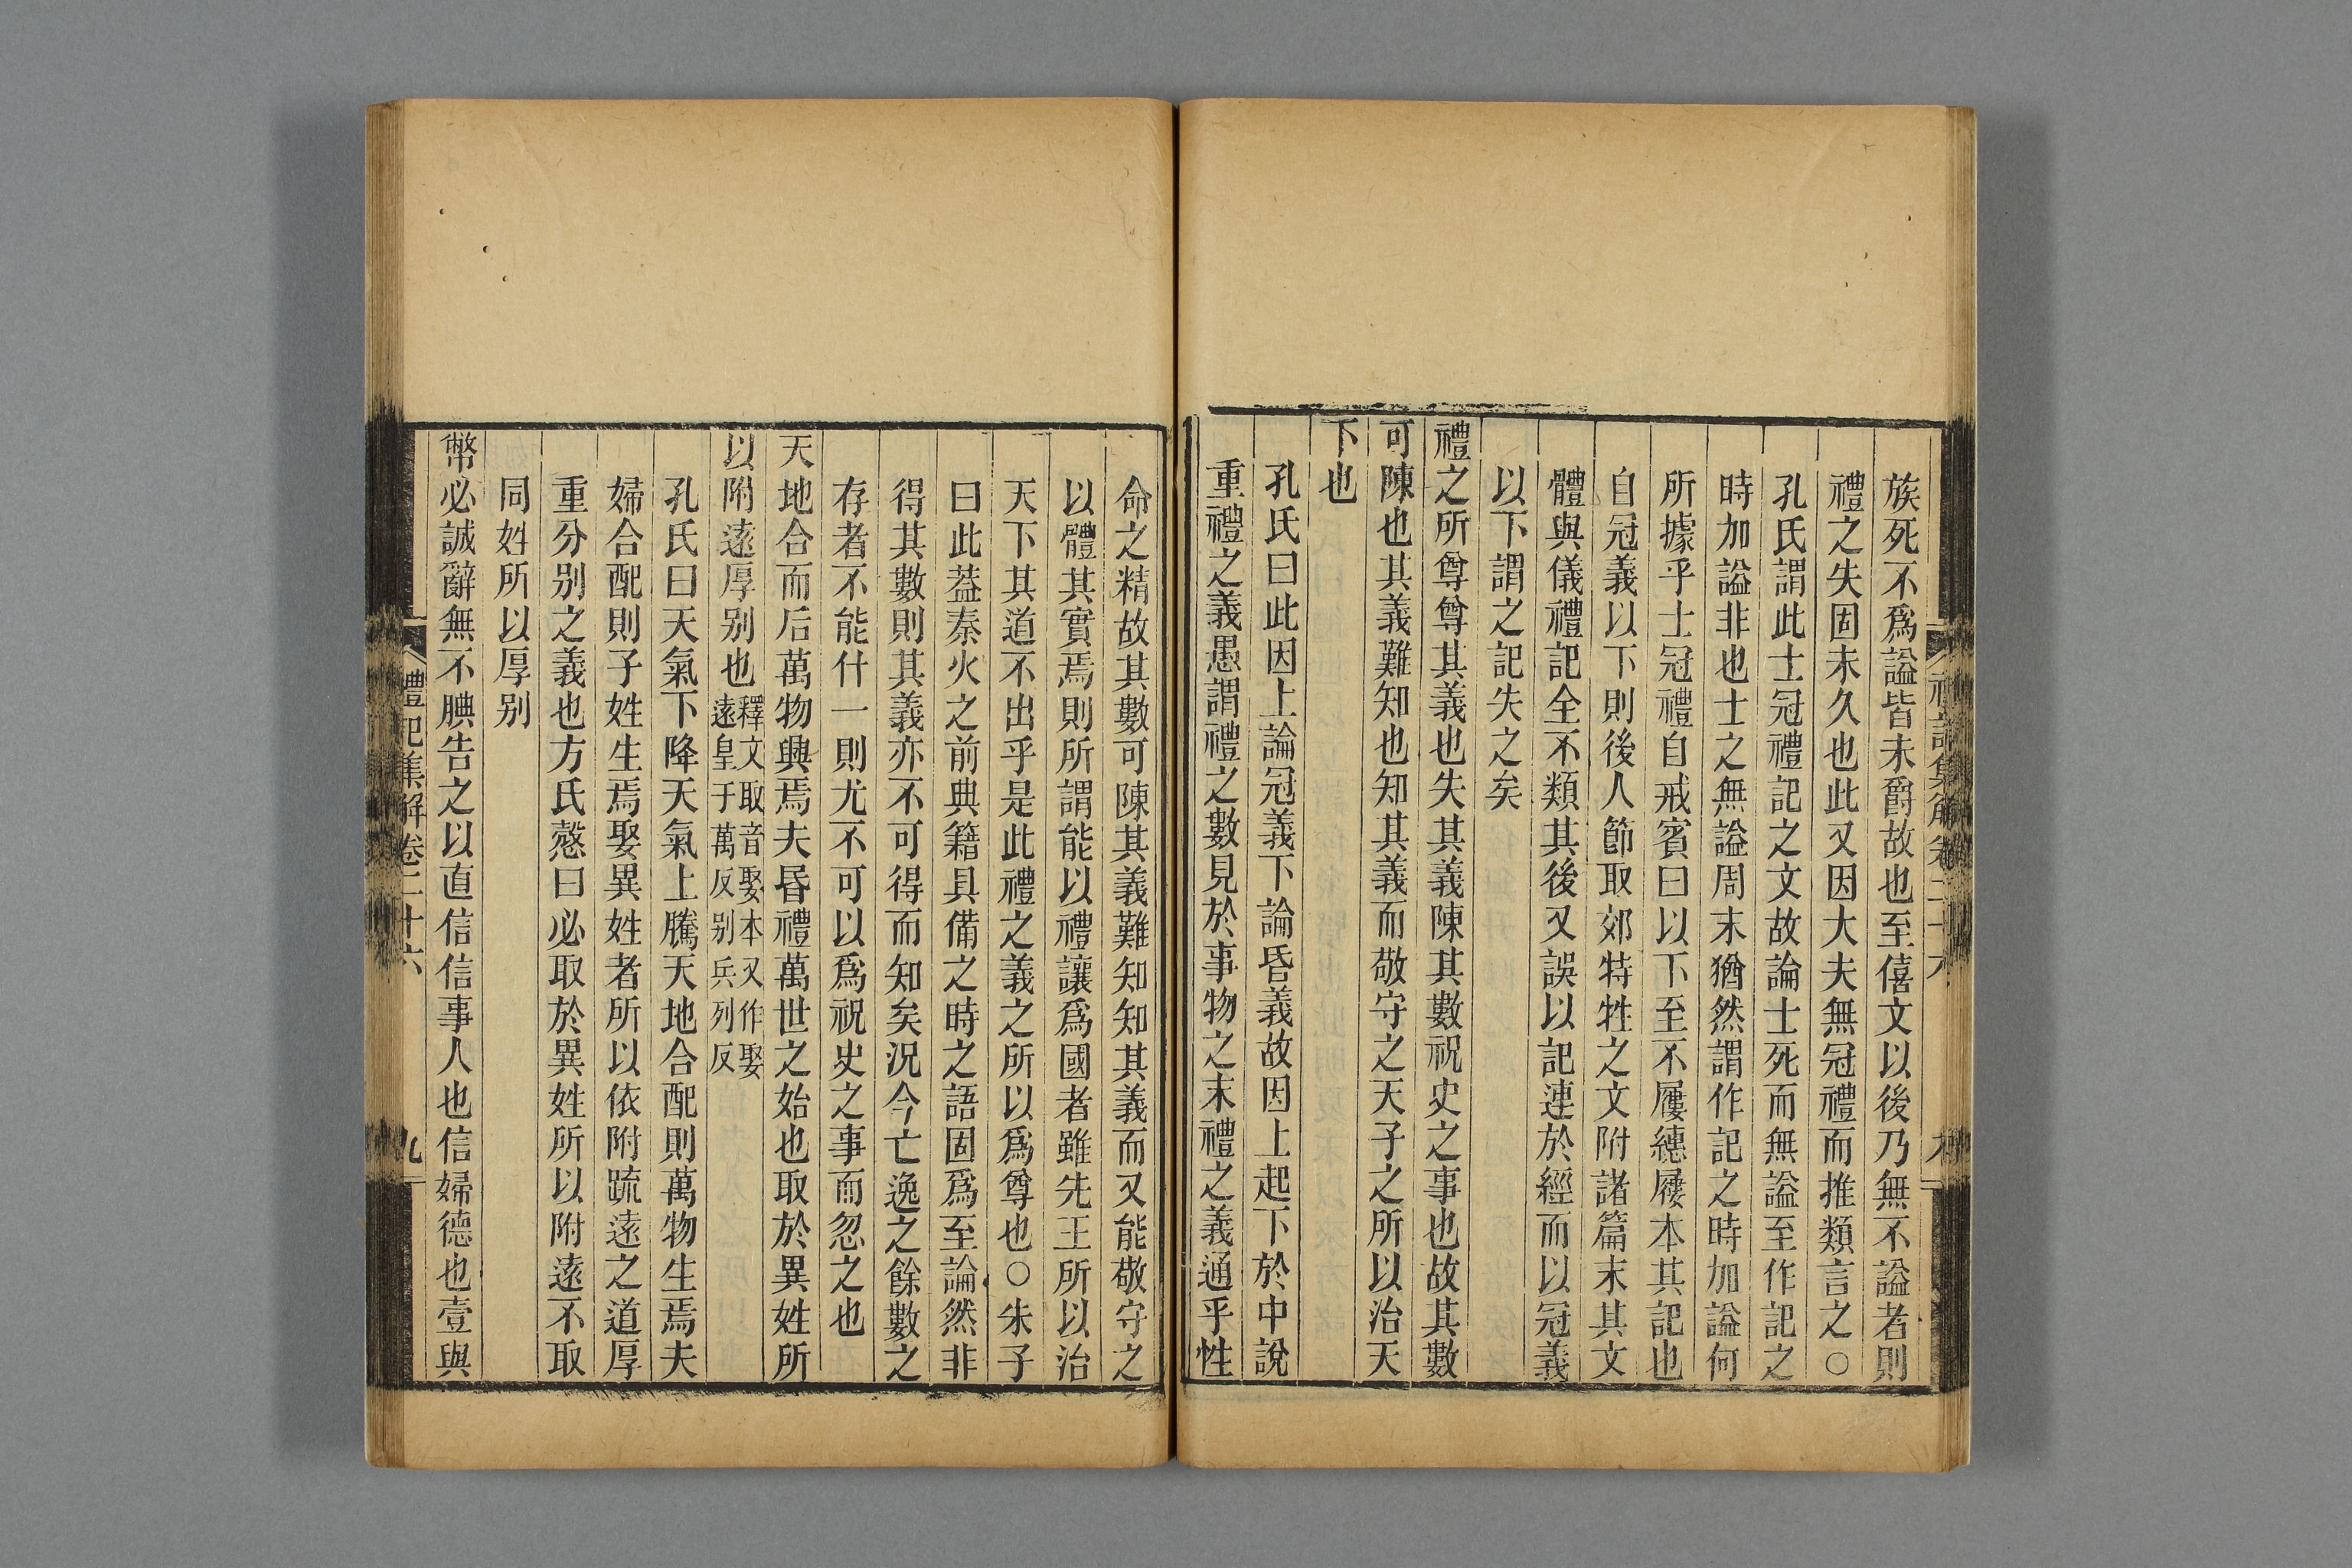 族死不爲諡皆未爵故也至僖文以後乃無不諡者則
禮之失固未久也此又因大夫無冠禮而推類言之○
孔氏謂此士冠禮記之文故論士死而無諡至作記之
時加諡非也士之無諡周末猶然謂作記之時加諡何
所據乎士冠禮自戒賓曰以下至不屨繐屨本其記也
自冠義以下則後人節取郊特牲之文附諸篇末其文
體與儀禮記全不類其後又誤以記連於經而以冠義
以下謂之記失之矣
禮之所尊尊其義也失其義陳其數祝史之事也故其數
可陳也其義難知也知其義而敬守之天子之所以治天
下也
孔氏曰此因上論冠義下論昏義故因上起下於中說
重禮之義愚謂禮之數見於事物之末禮之義通乎性
命之精故其數可陳其義難知知其義而又能敬守之
以體其實焉則所謂能以禮讓爲國者雖先王所以治
天下其道不出乎是此禮之義之所以爲尊也○朱子
曰此葢秦火之前典籍具備之時之語固爲至論然非
得其數則其義亦不可得而知矣況今亡逸之餘數之
存者不能什一則尤不可以爲祝史之事而忽之也
天地合而后萬物興焉夫昬禮萬世之始也取於異姓所
以附遠厚別也釋文取音娶本又作娶
遠皇于萬反别兵列反
孔氏曰天氣下降天氣上騰天地合配則萬物生焉夫
婦合配則子姓生焉娶異姓者所以依附疏遠之道厚
重分別之義也方氏慤曰必取於異姓所以附遠不取
同姓所以厚別
幣必誠辭無不腆告之以直信信事人也信婦德也壹與
禮記集解卷二十六
九